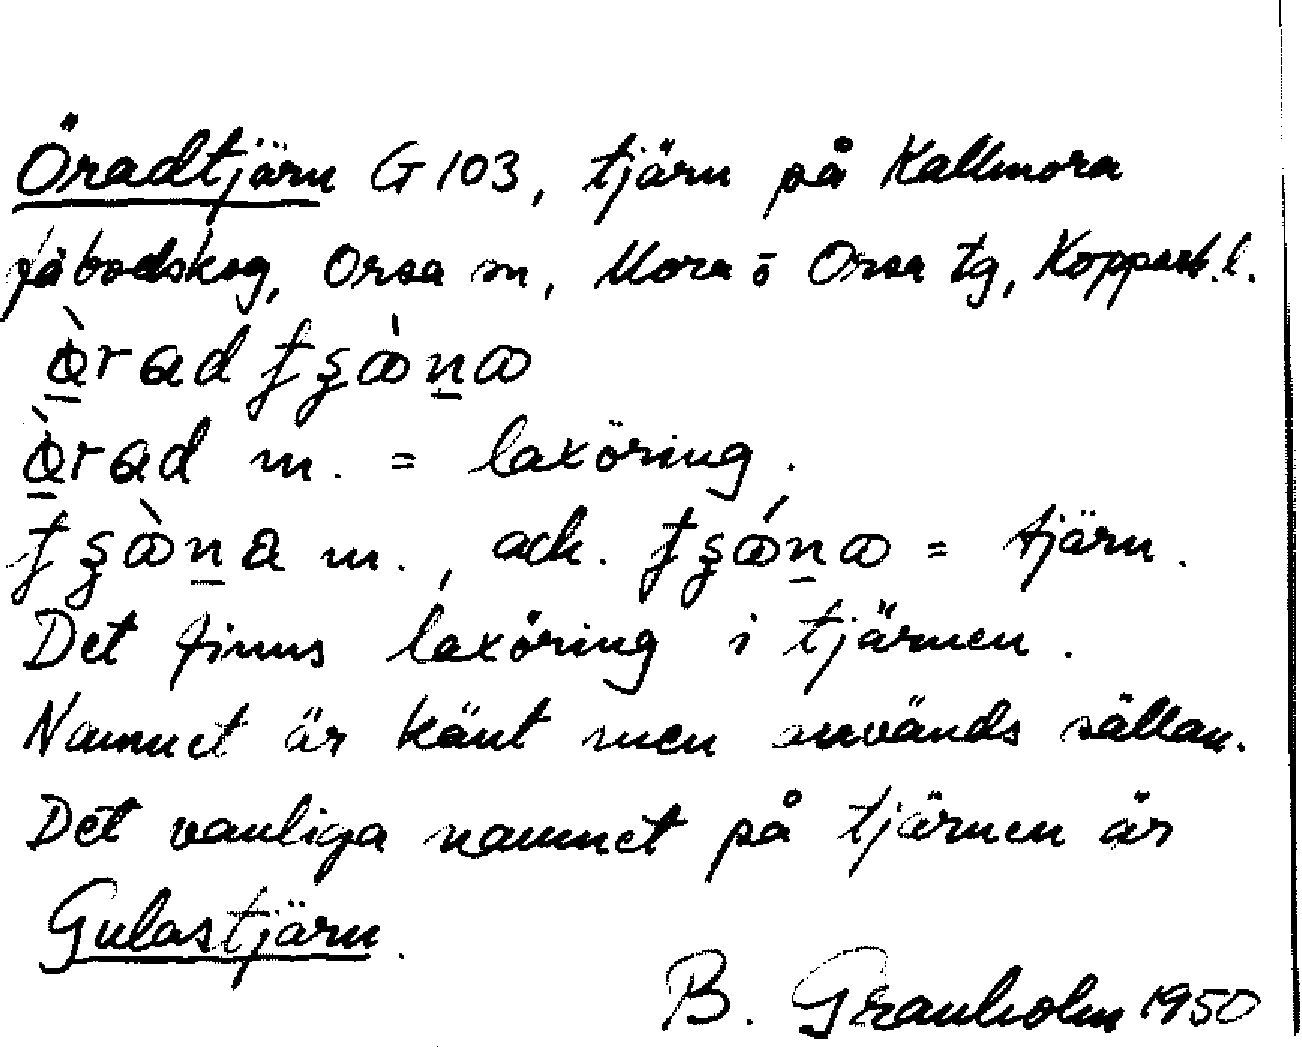 Öradtjärn G 103, tjärn på Kallmora
fäbodskog, Orsa sn, Mora o Orsa tg, Kopparb. l.
m. = laxöring.
m., ack. = tjärn.
Det finns laxöring i tjärnen.
Namnet är känt men används sällan.
Det vanliga namnet på tjärnen är
Gulastjärn.
B. Granholm 1950